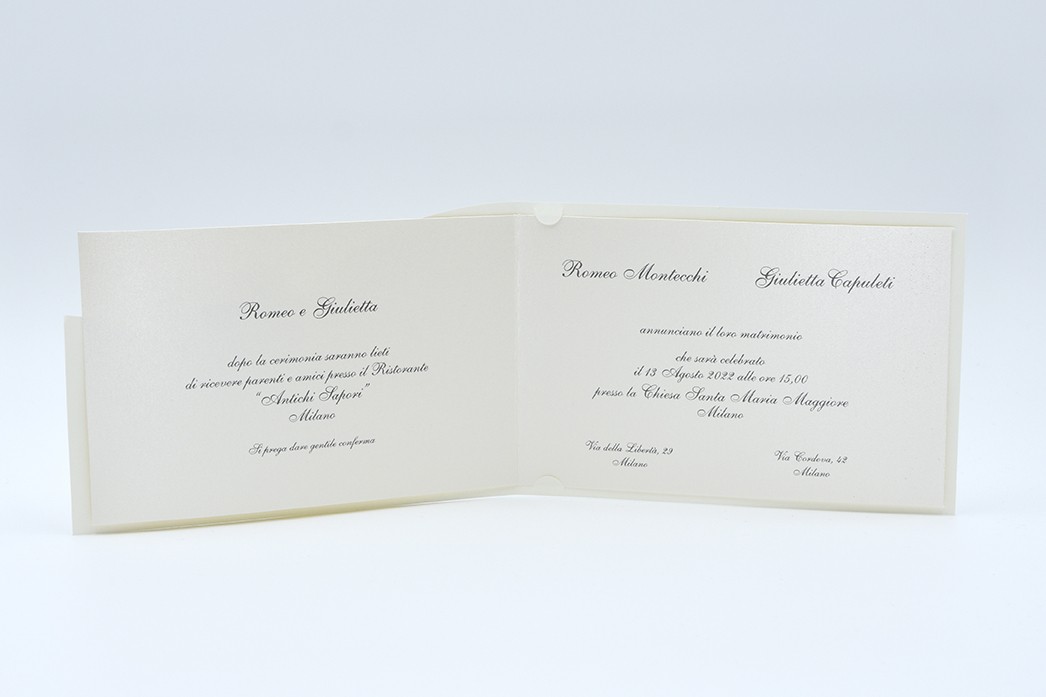 Romeo e Giulietta
dopo la cerimonia saranno lieti
di ricevere parenti e amici presso il Ristorante
“Antichi Sapori”
Milano
Si prega dare gentile conferma
Romeo Montecchi
Giulietta Capuleti
annunciano il loro matrimonio
che sarà celebrato
il 13 Agosto 2022 alle ore 15,00
presso la Chiesa Santa Maria Maggiore
Milano
Via della Libertà, 29
Milano
Via Cordova, 42
Milano